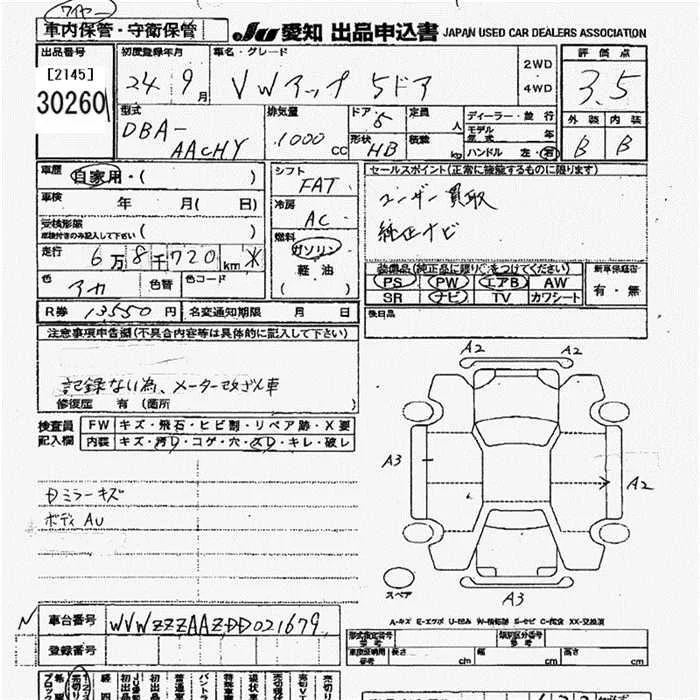 ワイヤー
車内保管・守衛保管
JU 愛知 出品申込書 JAPAN USED CAR DEALERS ASSOCIATION
出品番号 初度登録年月 車名・グレード 評価点
[2145]
30260
24 9月 VWアップ 5ドア 2WD・4WD 3.5
型式 排気量 ドア 定員 ディーラー・並行 外装 内装
DBA-AACHY 1000CC 5 人 モデル年式 年 B B
形状 HB 積載 kg ハンドル 左・右
車歴 自家用・( ) シフト FAT セールスポイント(正常に機能するものに限ります)
車検 年 月( 日) 冷房 AC ユーザー買取
受検形態 ( ) 純正ナビ
車検付きのみ記入して下さい
走行 6万8千720km* 燃料 ガソリン 軽油 ( )
装備品(純正品に限り〇をつけてください) 新車保証書
色 アカ 色替 色コード PS PW エアB AW 有・無
SR ナビ TV カワシート
R券 13550円 名変通知期限 月 日 後日品
注意事項申告欄(不具合内容等は具体的に記入して下さい)
記録ない為、メーター改ざん車
修復歴 有(箇所 )
検査員記入欄 FW キズ・飛石・ヒビ割・リペア跡・X要
内装 キズ・汚D・コゲ・穴・スレ・キレ・破レ
A2 A2
A3 A2
ミラーキズ
ボディAU
スペア A3
A-キズ E-エクボ U-凹み W-補修跡 S-サビ C-腐食 XX-交換済
車台番号 WVWZZZAAZDD021679
登録番号
形式指定番号 参考 類別区分番号 参考
車庫証明用 参考 長さ cm 幅 cm 高さ cm